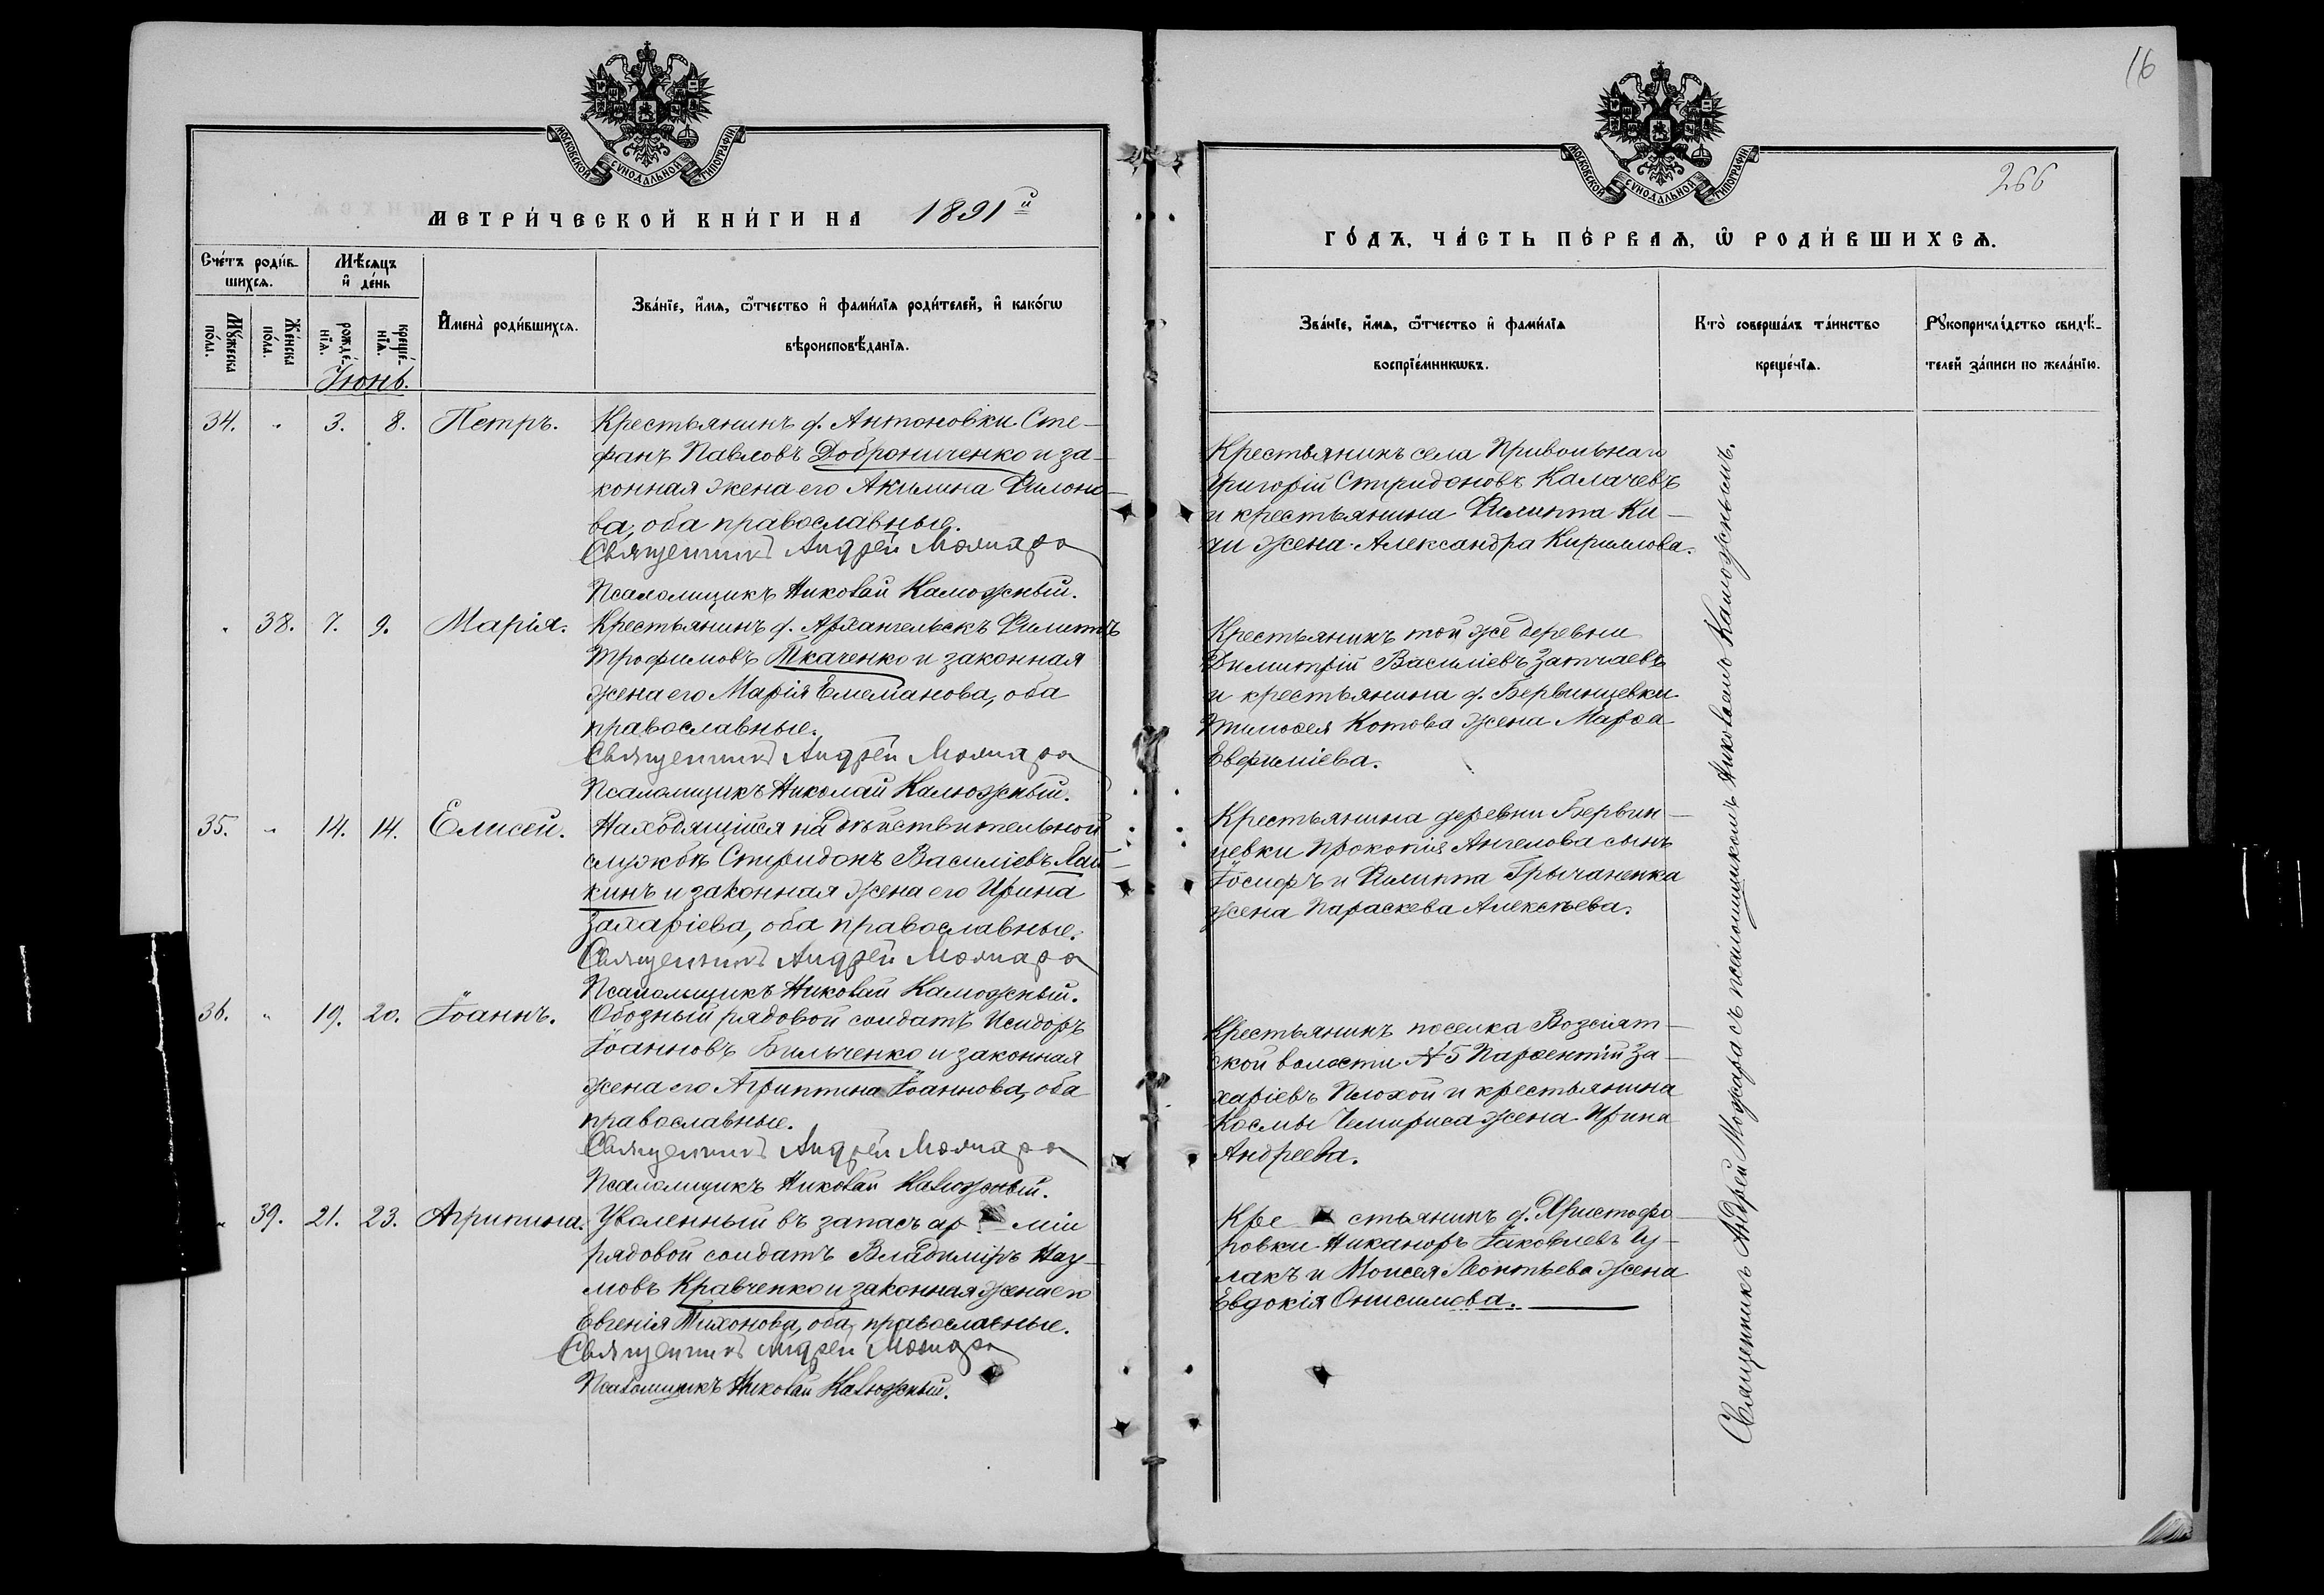 16
266
МОСКОВСКОЙ СѴНОДАЛЬНОЙ ТИПОГРАФІИ
МЕТРИ́ЧЕСКОЙ КНИ́ГИ НА 1891й
Сче́тъ роди́в-
шихсѧ.
Мѣ́сѧцъ
и҆ де́нь
Мꙋ́жеска
по́ла.
Же́нска
по́ла.
рожде́-
нїѧ.
креще́-
нїѧ.
Июнь.
И҆мена̀ роди́вшихсѧ.
Зва́нїе, и҆́мѧ, ѻ҆́тчество и҆ фами́лїѧ роди́телей, и҆ како́гѡ
вѣроисповѣ́данїѧ.
34. " 3. 8. Петръ. Крестьянинъ д. Антоновки Сте-
фанъ Павловъ Доброниченко и за-
конная жена его Акилина Филоно-
ва, оба православные.
Священникъ Андрей
Псаломщикъ Николай Калюжный.
" 38. 7. 9. Марія. Крестьянинъ д. Архангельскъ Филиппъ
Трофимовъ Ткаченко и законная
жена его Марія Емеліанова, оба
православные.
Священникъ Андрей
Псаломщикъ Николай Калюжный.
35. " 14. 14. Елисей. Находящійся на дѣйствительной
службѣ Спиридонъ Василіевъ
кинъ и законная жена его Ирина
Захаріева, оба православные.
Священникъ Андрей
Псаломщикъ Николай Калюжный.
36. " 19. 20. Іоаннъ. Обозный рядовой солдатъ Исидоръ
Іоанновъ Бильченко и законная
жена его Агриппина Іоаннова, оба
православные.
Священникъ Андрей
Псаломщикъ Николай Калюжный.
" 39. 21. 23. Агрипина. Уволенный въ запасъ ар- міи
рядовой солдатъ Владиміръ Нау-
мовъ Кравченко и законная жена его
Евгенія Тихонова, оба православные.
Священникъ Андрей
Псаломщикъ Николай Калюжный.
МОСКОВСКОЙ СѴНОДАЛЬНОЙ ТИПОГРАФІИ
ГО́ДЪ, ЧА́СТЬ ПЕ́РВАѦ, Ѽ РОДИ́ВШИХСѦ.
Зва́нїе, и҆́мѧ, ѻ҆́тчество и҆ фами́лїѧ
воспрїе́мникѡвъ.
Кто̀ соверша́лъ та́инство
креще́нїѧ.
Рꙋкоприкла́дство свидѣ́-
телей за́писи по жела́нїю.
Крестьянинъ села Привольнаго
Григорій Спиридоновъ Калачевъ
и крестьянина Филиппа Ки-
чи жена Александра Кириллова.
Крестьянинъ той же деревни
Димитрій Василіевъ
и крестьянина д. Бервинцевки
Тимоѳея Котова жена Марѳа
Евфиміева.
Крестьянина деревни Бервин-
цевки Прокопія Ангелова сынъ
Іосифъ и Филиппа Грычаненка
жена Параскева Алексѣева.
Крестьянинъ поселка Возсіят-
ской волости №5 Парѳентій За-
харіевъ Плохой и крестьянина
Космы Чемириса жена Ирина
Андреева.
Кре- стьянинъ д. Христофо-
ровки Никаноръ Іаковлевъ Гу-
лакъ и Моисея Леонтьева жена
Евдокія Онисимова.
Священникъ Андрей съ псаломщикомъ Николаемъ Калюжнымъ.